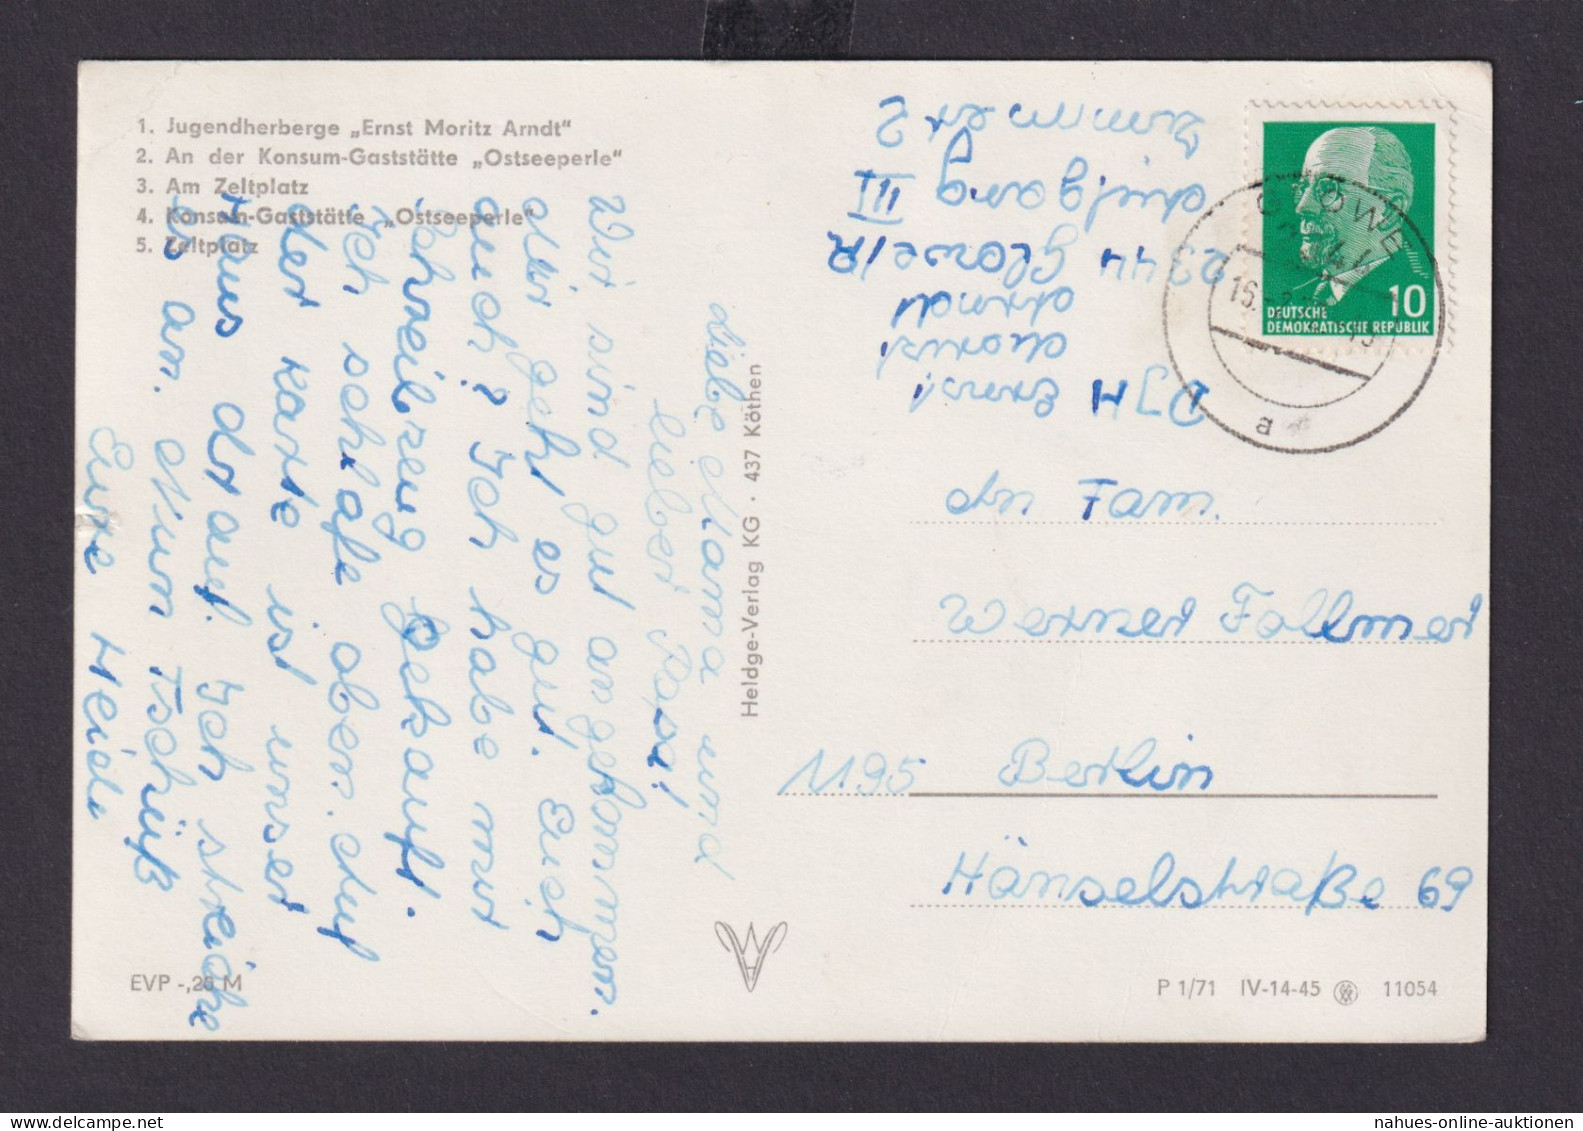 1. Jugendherberge „Ernst Moritz Arndt“
2. An der Konsum-Gaststätte „Ostseeperle“
3. Am Zeltplatz
4. Konsum-Gaststätte „Ostseeperle“
5. Zeltplatz
Liebe Mama und
lieber Papa!
Wir sind gut angekommen.
Mir geht es gut. Euch
auch? Ich habe mir
Schreibzeug gekauft.
Ich schlafe oben. Auf
der Karte ist unser
Haus drauf. Ich streiche
es an. Nun Tschüß
Eure Heide
EVP -,25 M
Heldge-Verlag KG · 437 Köthen
DJH Ernst
Moritz
Arndt
2344 Glowe/R
Aufgang III
Zimmer 2
DEUTSCHE
DEMOKRATISCHE REPUBLIK
10
GLOWE
a
An Fam.
Werner Follmer
1195 Berlin
Hänselstraße 69
P 1/71 IV-14-45 11054
nahues-online-auktionen